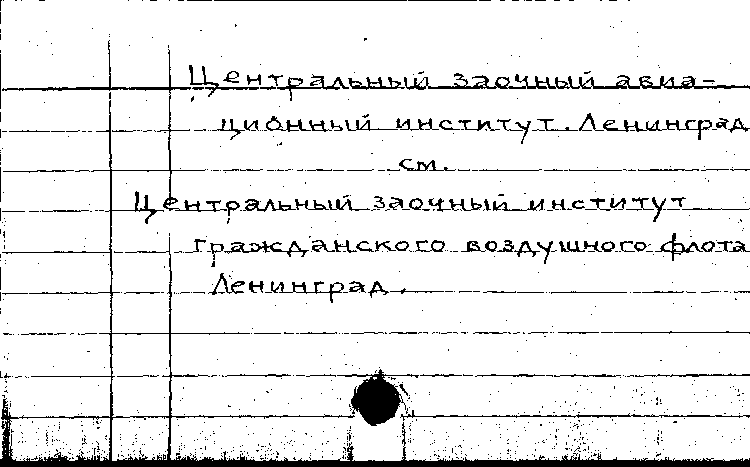 Центральный заочный авиа-
ционный институт. Ленинград
см.
Центральный заочный институт
гражданского воздушного флота
Ленинград.